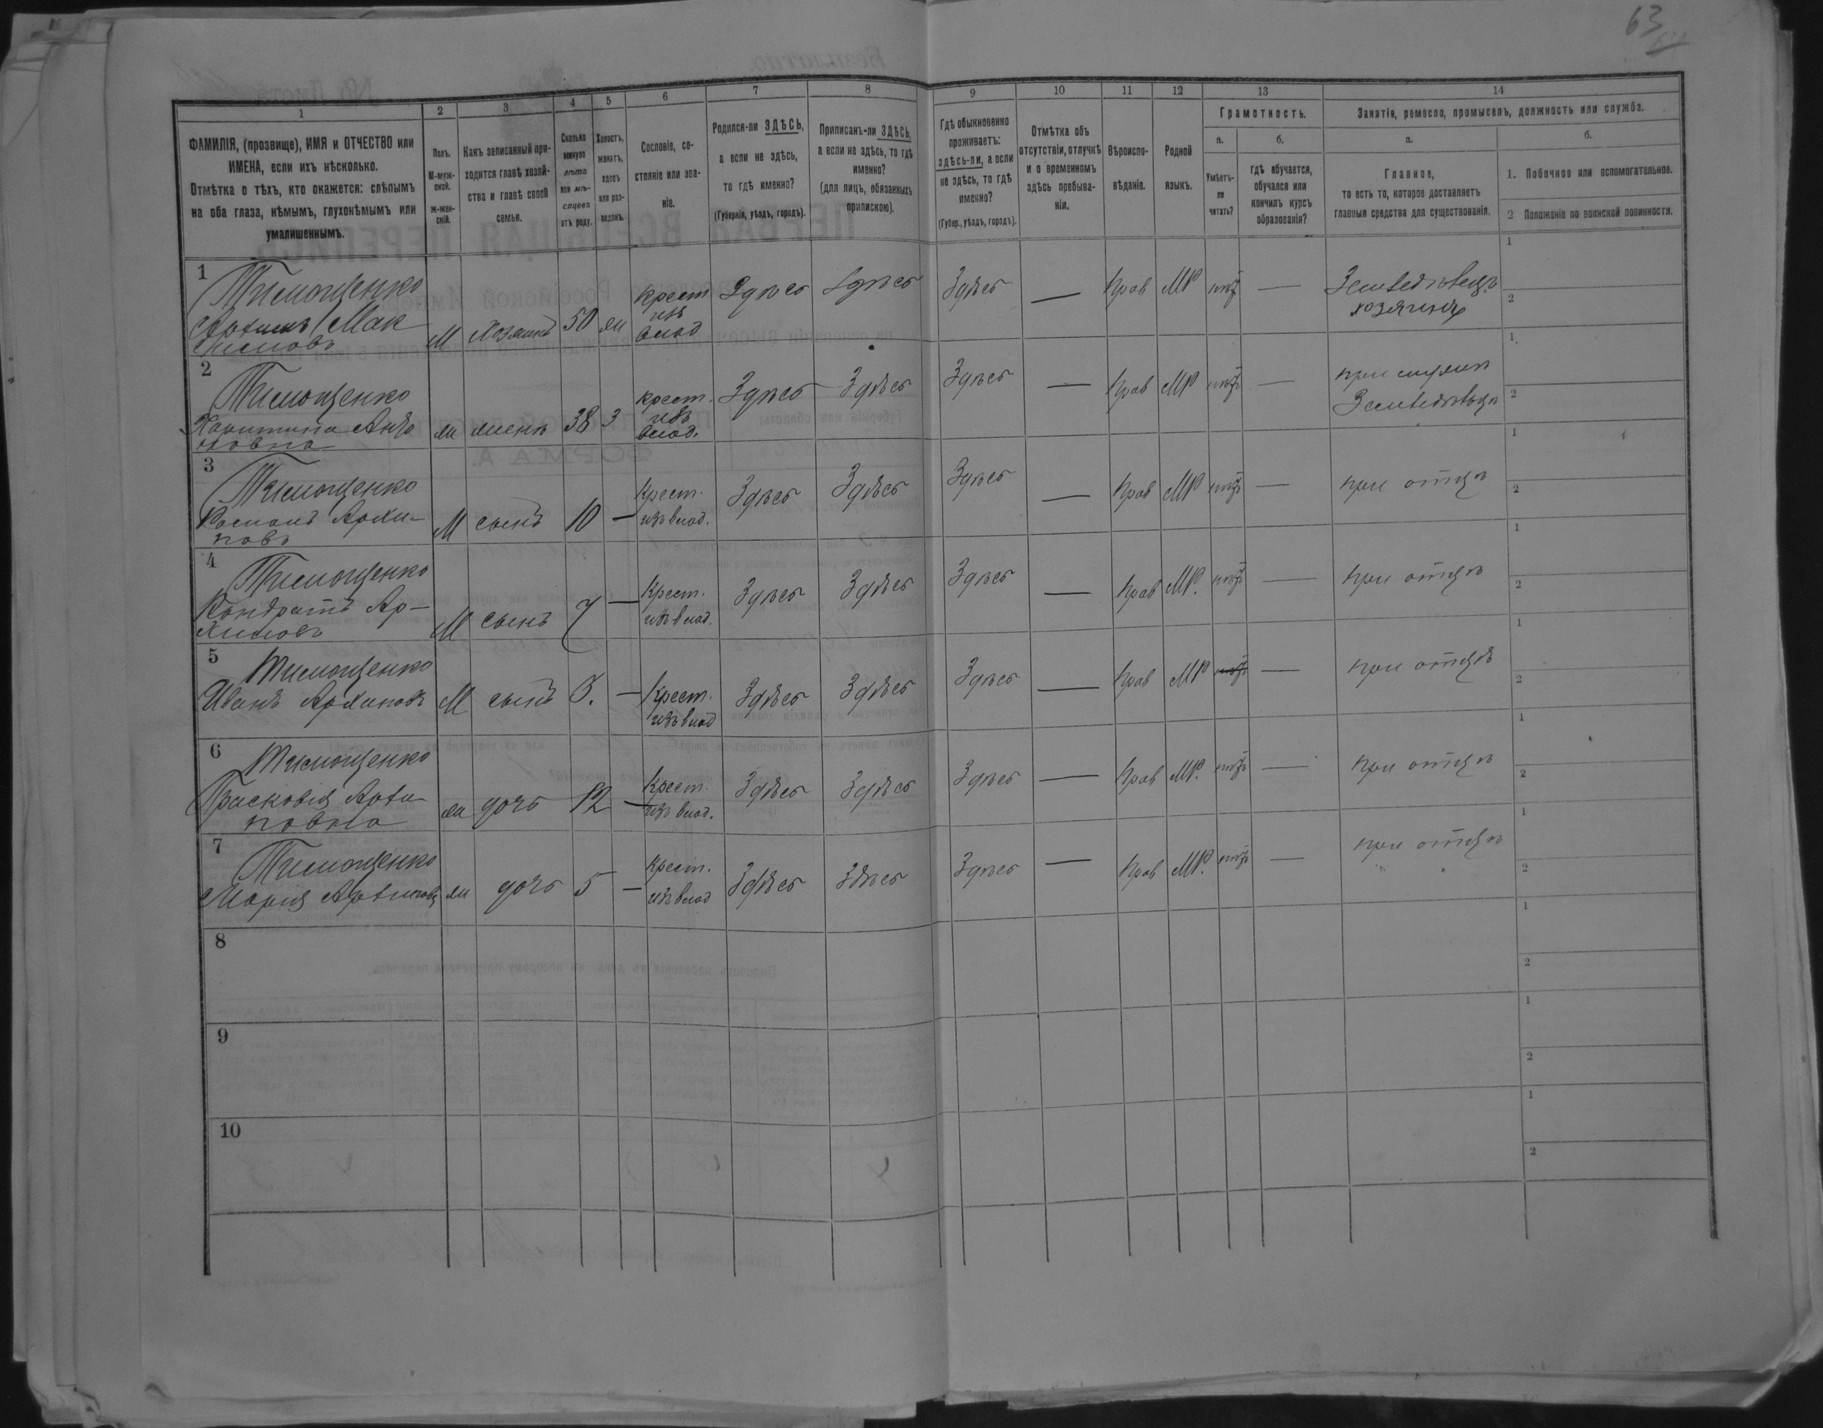 63
1
2
3
4
5
6
7
8
9
10
11
12
13
14
ФАМИЛІЯ, (прозвище), ИМЯ и ОТЧЕСТВО или
ИМЕНА, если ихъ нѣсколько.
Отмѣтка о тѣхъ, кто окажется: слѣпымъ
на оба глаза, нѣмымъ, глухонѣмымъ или
умалишеннымъ.
Полъ.
М-муж-
ской.
Ж-жен-
скій.
Какъ записанный при-
ходится главѣ хозяй-
ства и главѣ своей
семьи.
Сколько
минуло
лѣтъ
или мѣ-
сяцевъ
отъ роду.
Холостъ,
женатъ,
вдовъ
или раз-
веденъ.
Сословіе, со-
стояніе или зва-
ніе.
Родился-ли ЗДѢСЬ,
а если не здѣсь,
то гдѣ именно?
(Губернія, уѣздъ, городъ).
Приписанъ-ли ЗДѢСЬ,
а если не здѣсь, то гдѣ
именно?
(для лицъ, обязанныхъ
припискою).
Гдѣ обыкновенно
проживаетъ:
здѣсь-ли, а если
не здѣсь, то гдѣ
именно?
(Губер., уѣздъ, городъ).
Отмѣтка объ
отсутствіи, отлучкѣ
и о временномъ
здѣсь пребыва-
ніи.
Вѣроиспо-
вѣданіе.
Родной
языкъ.
Грамотность.
а.
Умѣетъ-
ли
читать?
б.
Гдѣ обучается,
обучался или
кончилъ курсъ
образованія?
Занятіе, ремесло, промыселъ, должность или служба.
а.
Главное,
то есть то, которое доставляетъ
главныя средства для существованія.
б.
1. Побочное или вспомогательное.
2 Положеніе по воинской повинности.
1
Тимощенко
Архипъ Мак
симовъ
М
хозяинъ
50
жи
крест
изъ
влад
Здѣсь
Здѣсь
Здѣсь
—
Прав
МР
нѣтъ
—
Земледѣлецъ
хозяинъ
1
2
2
Тимощенко
Харитина
новна
жи
жена
38
З
крест.
изъ
влад.
Здѣсь
Здѣсь
Здѣсь
—
Прав
МР
нѣтъ
—
при мужѣ
1
2
3
Тимощенко
Романъ Архи-
повъ
М
сынъ
10
—
Крест.
изъ влад.
Здѣсь
Здѣсь
Здѣсь
—
Прав
МР
нѣтъ
—
при отцѣ
1
2
4
Тимощенко
Кондратъ Ар-
хиповъ
М
сынъ
7
—
Крест.
изъ влад.
Здѣсь
Здѣсь
Здѣсь
—
Прав
МР.
нѣтъ
—
при отцѣ
1
2
5
Тимощенко
Иванъ Архиповъ
М
сынъ
—
Крест.
изъ влад
Здѣсь
Здѣсь
Здѣсь
—
Прав
МР
нѣтъ
—
при отцѣ
1
2
6
Тимощенко
Прасковія Архи
повна
жи
дочь
12
—
Крест.
изъ влад.
Здѣсь
Здѣсь
Здѣсь
—
Прав
МР.
нѣтъ
—
при отцѣ
1
2
7
Тимощенко
Марія
жи
дочь
5
—
Крест.
изъ влад
Здѣсь
Здѣсь
Здѣсь
—
Прав
МР.
нѣтъ
—
при отцѣ
1
2
8
1
2
9
1
2
10
1
2